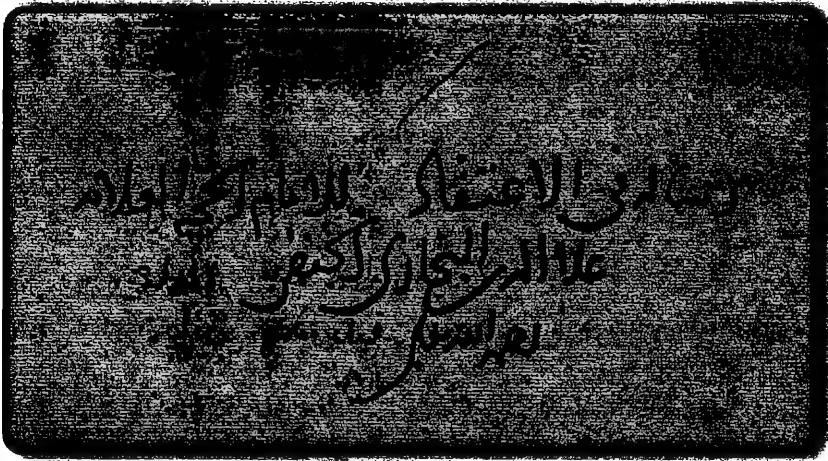 رسالة في الاعتقاد للامام الحجة العلامه
علا الدين البخاري الحنفي
رحمه الله تعالى